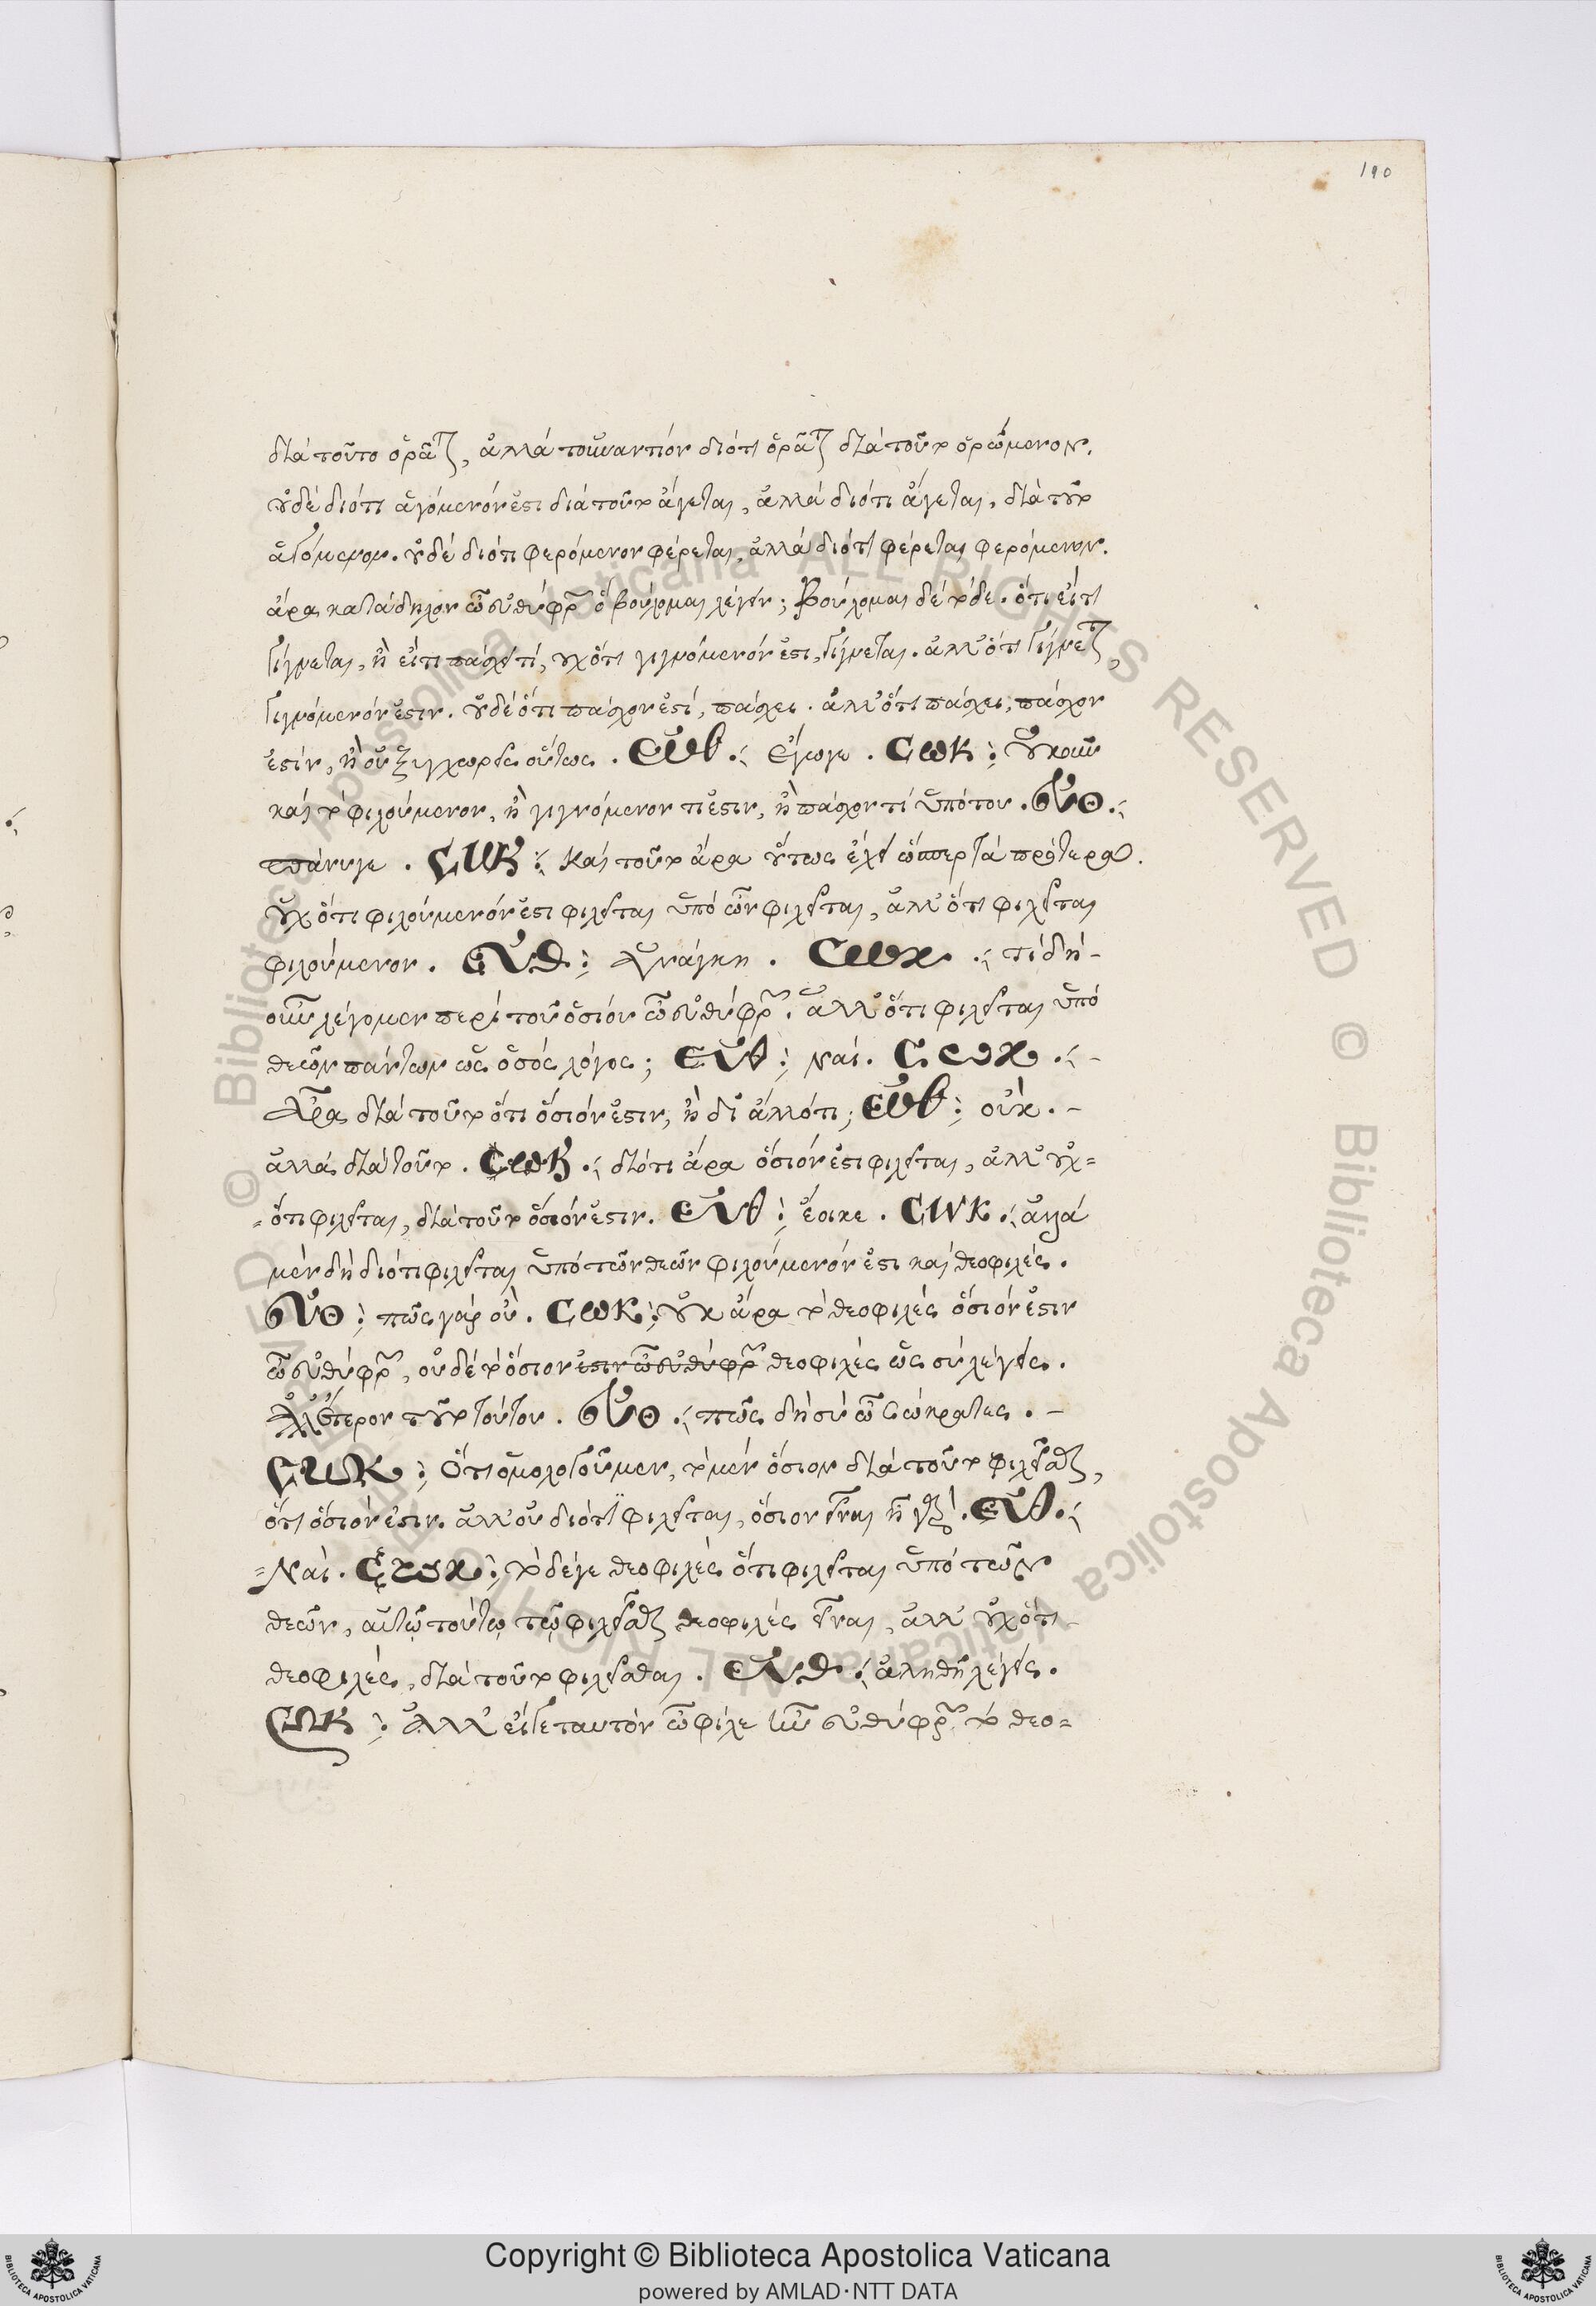 190
διὰ τοῦτο ὁρᾶται, ἀλλὰ τοὐναντίον διότι ὁρᾶται διὰ τοῦτο ὁρώμενον.
οὐδὲ διότι ἀγόμενόν ἐστι διὰ τοῦτο ἄγεται, ἀλλὰ διότι ἄγεται, διὰ τοῦτο
ἀγόμενον. οὐδὲ διότι φερόμενον φέρεται, ἀλλὰ διότι φέρεται φερόμενον.
ἆρα κατάδηλον ὦ εὐθύφρον ὃ βούλομαι λέγειν; βούλομαι δὲ τόδε. ὅτι εἴ τι
γίγνεται, ἢ εἴ τι πάσχει τί, οὐχ ὅτι γιγνόμενόν ἐστι, γίγνεται. ἀλλ' ὅτι γίγνεται,
γιγνόμενόν ἐστιν. οὐδὲ ὅτι πάσχον ἐστί, πάσχει. ἀλλ' ὅτι πάσχει, πάσχον
ἐστίν, ἢ οὐ ξυγχωρεῖς οὕτως. ΕΥΘ. Ἔγωγε. ΣΩΚ: Οὐκοῦν
καὶ τὸ φιλούμενον, ἢ γιγνόμενον τι ἐστιν, ἢ πάσχον τί ὑπό του. ΕΥΘ.
πάνυ γε. ΣΩΚ: Καὶ τοῦτο ἄρα οὕτως ἔχει ὥσπερ τὰ πρότερα.
οὐχ ὅτι φιλούμενόν ἐστι φιλεῖται ὑπὸ ὧν φιλεῖται, ἀλλ' ὅτι φιλεῖται
φιλούμενον. ΕΥΘ: Ἀνάγκη. ΣΩΚ. τί δὴ-
οὖν λέγομεν περὶ τοῦ ὁσίου ὦ εὐθύφρον. ἄλλο ὅτι φιλεῖται ὑπὸ
θεῶν πάντων ὡς ὁ σὸς λόγος; ΕΥΘ: ναί. ΣΩΚ. -
Ἆρα διὰ τοῦτο ὅτι ὅσιόν ἐστιν, ἢ δι' ἄλλό τι; ΕΥΘ: οὐκ. -
ἀλλὰ διὰ τοῦτο. ΣΩΚ. διότι ἄρα ὅσιόν ἐστι φιλεῖται, ἀλλ' οὐχ=
=ὅτι φιλεῖται, διὰ τοῦτο ὅσιόν ἐστιν. ΕΥΘ: ἔοικε. ΣΩΚ. ἀλλὰ
μὲν δὴ διότι φιλεῖται ὑπὸ τῶν θεῶν φιλούμενόν ἐστι καὶ θεοφιλές.
ΕΥΘ: πῶς γὰρ οὔ. ΣΩΚ: οὐκ ἄρα τὸ θεοφιλές ὅσιόν ἐστιν
ὦ εὐθύφρον, οὐδὲ τὸ ὅσιον ἐστιν ὦ εὐθύφρον θεοφιλές ὡς σὺ λέγεις.
Ἀλλ' ἕτερον τοῦτο τούτου. ΕΥΘ. πῶς δὴ σὺ ὦ Σώκρατες. -
ΣΩΚ: Ὅτι ὁμολογοῦμεν, τὸ μὲν ὅσιον διὰ τοῦτο φιλεῖσθαι,
ὅτι ὅσιόν ἐστιν. ἀλλ' οὐ διότι φιλεῖται, ὅσιον εἶναι ἦ γάρ. ΕΥΘ.
=Ναί. ΣΩΚ: τὸ δέ γε θεοφιλές ὅτι φιλεῖται ὑπὸ τῶν
θεῶν, αὐτῷ τούτῳ τῷ φιλεῖσθαι θεοφιλές εἶναι, ἀλλ' οὐχ ὅτι-
θεοφιλές, διὰ τοῦτο φιλεῖσθαι. ΕΥΘ. ἀληθῆ λέγεις.
ΣΩΚ: Ἀλλ' εἴ γε ταυτὸν ὦ φίλε ἦν εὐθύφρον τὸ θεο=
Copyright © Biblioteca Apostolica Vaticana
powered by AMLAD·NTT DATA
© Biblioteca Apostolica Vaticana ALL RIGHTS RESERVED
© Biblioteca Apostolica Vaticana ALL RIGHTS RESERVED